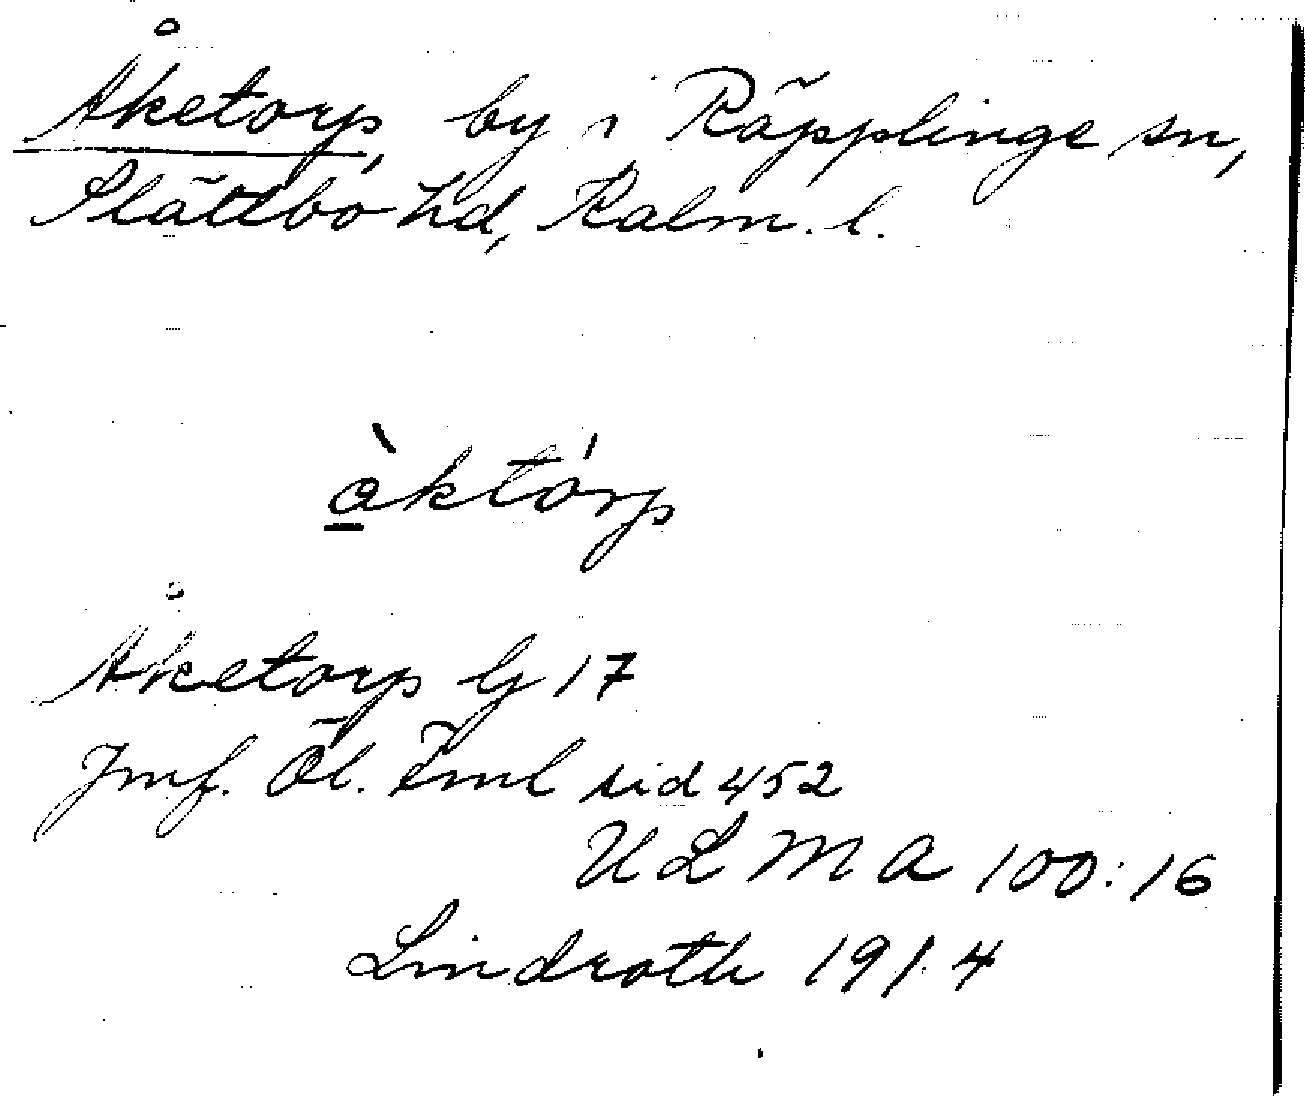 Åketorp, by i Räpplinge sn,
Slättbo hd, Kalm. l.
à̲którp
Åketorp G 17
Jmf. Öl. Fml sid 452
ULMA 100:16
Lindroth 1914